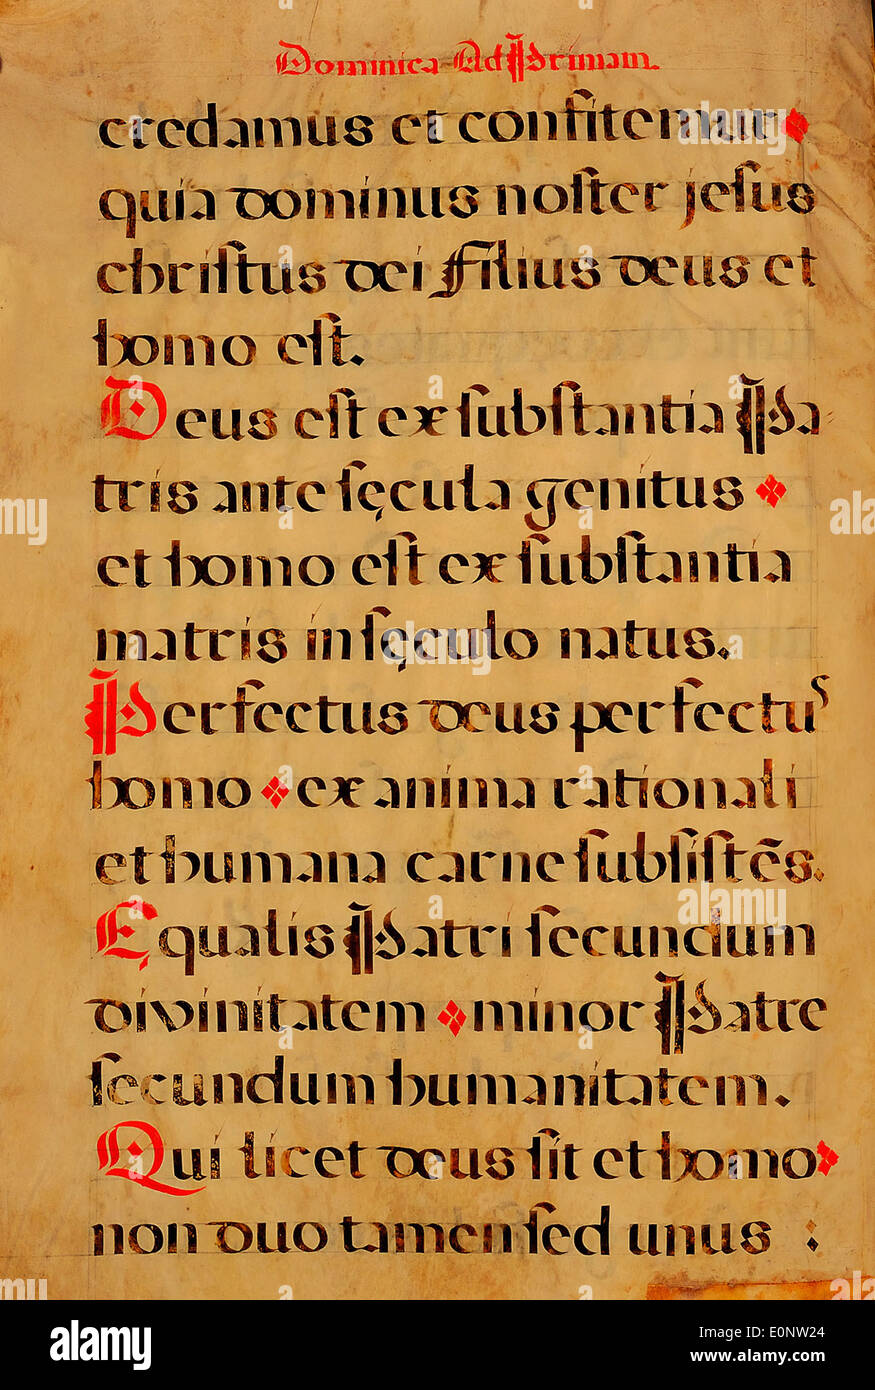 Dominica Ad Primam.
credamus et confitemur
quia dominus noſter jeſus
chriſtus dei filius deus et
homo eſt.
Deus eſt ex ſubſtantia Pa-
tris ante ſęcula genitus
et homo eſt ex ſubſtantia
matris in ſęculo natus.
Perfectus deus perfectus
homo ex anima rationali
et humana carne ſubſiſtēs.
Ęqualis Patri ſecundum
divinitatem minor Patre
ſecundum humanitatem.
Qui licet deus ſit et homo
non duo tamen ſed unus :
alamy
Image ID: E0NW24
www.alamy.com